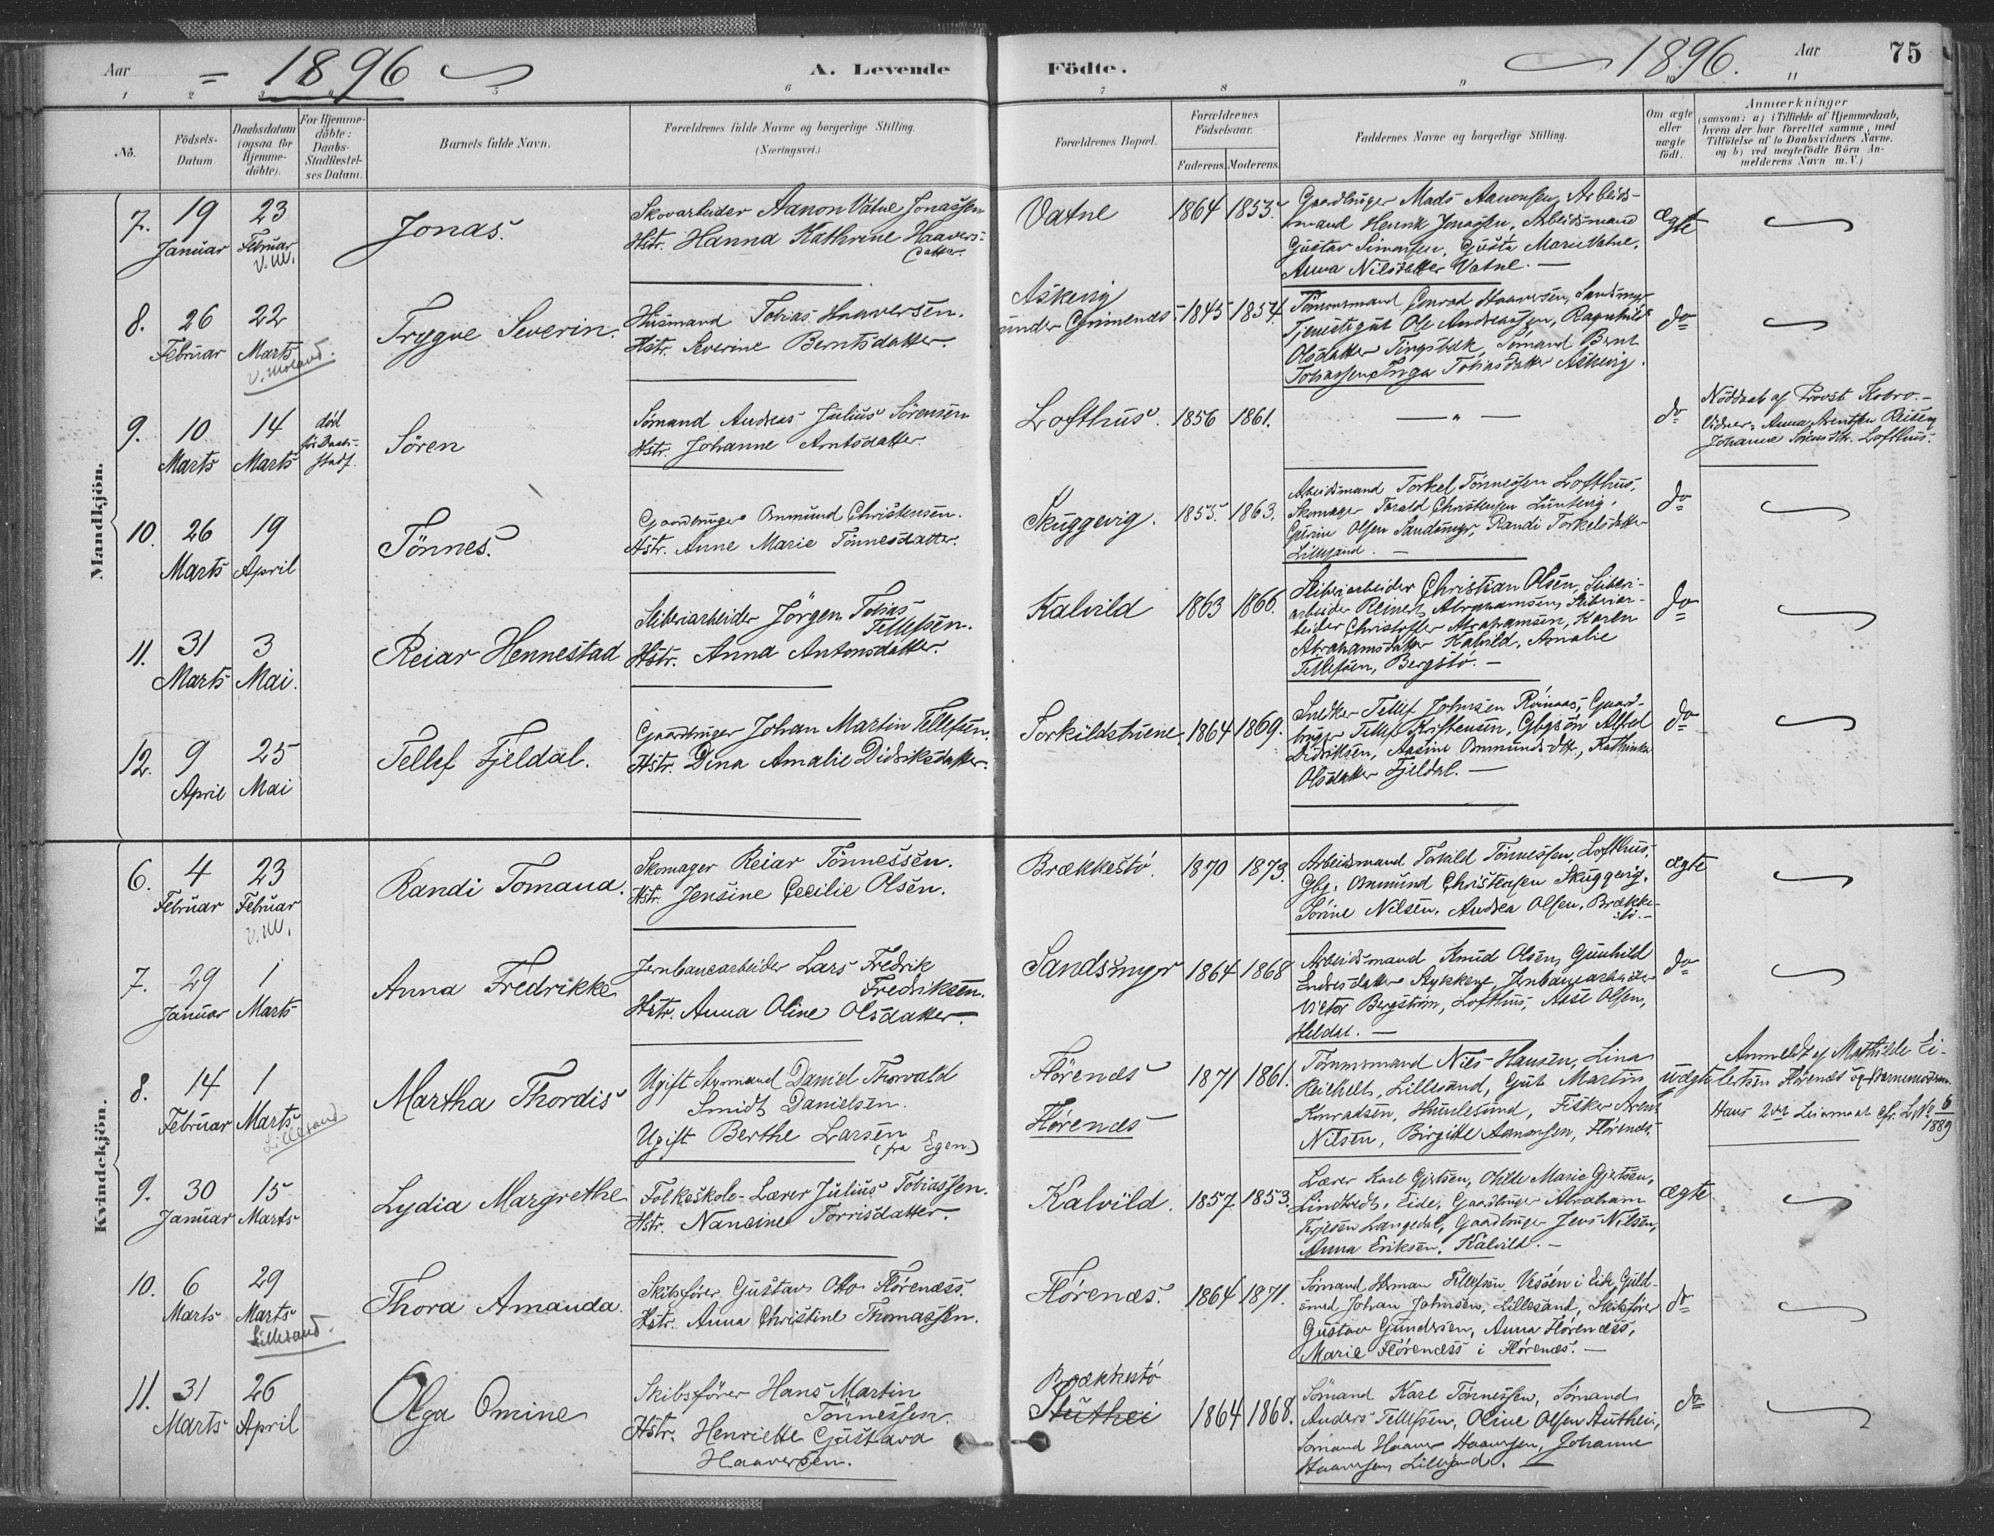 Aar = 1896
A. Levende Födte.
1896. Aar
75
1 2 3 4 5 6 7 8 9 10 11
No.
Födsels-Datum
Daabsdatum (ogsaa for Hjemme-döbte).
For Hjemme-döbte: Daabs-Stadfæstel-ses Datum.
Barnets fulde Navn.
Forældrenes fulde Navne og borgerlige Stilling. (Næringsvei.)
Forældrenes Bopæl.
Forældrenes Födselsaar.
Faderens. Moderens.
Faddernes Navne og borgerlige Stilling.
Om ægte eller uægte födt.
Anmærkninger
(saasom: a) i Tilfælde af Hjemmedaab,
hvem der har forrettet samme, med
Tilföielse af to Daabsvidners Navne.
og b) ved uægtefödte Börn An-
melderens Navn m. V.)
Mandkjön.
7. 19 Januar
23 Februar V.M.
Jonas.
Skovarbeider Aanon Vatne Jonassen
Hstr. Hanna Kathrine Haavers-
datter.
Vatne
1864 1853.
Gaardbruger Mads Aanonsen, Arbeids-
mand Henrik Jonassen, Arbeidsmand
Gustav Simonsen, Gusta Marie Vatne,
Anna Nilsdatter Vatne. —
ægte
8. 26 Februar
22 Marts V. Moland.
Trygve Severin.
Husmand Tobias Haaversen.
Hstr. Severine Berntsdatter.
Askevig
under Grimenes
1845 1854.
Tömmermand Conrad Haaversen, Sandsmyr
Tjenestegut Ole Andreassen, Ragnhild
Olsdatter Tingsbæk, Sömand Bernt
Tobiassen, Inga Tobiasdatter Askevig.
do
9. 10 Marts
14 Marts
död för Daabs-stadf.
Sören
Sömand Andreas Julius Sörensen
Hstr. Johanne Arntsdatter.
Lofthus.
1856 1861.
— " —
do
Nöddaab af Provst Kobro.—
Vidner: Anna Arentsen
Johanne Sörensdtr. Lofthus.
10. 26 Marts
19 April
Tönnes.
Gaardbruger Ommund Christensen.
Hstr. Anne Marie Tönnesdatter.
Skuggevig.
1855. 1863.
Arbeidsmand Torkel Tönnessen Lofthus,
Skomager Torald Christensen Lundevig,
Gurine Olsen Sandsmyr, Randi Torkelsdatter
Lillesand. —
do
11. 31 Marts
3 Mai.
Reiar Hennestad
Sliberiarbeider Jörgen Tobias
Tellefsen.
Hstr. Anna Antonsdatter.
Kalvild
1863 1866.
Sliberiarbeider Christian Olsen, Sliberi-
arbeider Reinert Abrahamsen, Sliberiar-
beider Christoffer Abrahamsen, Karen
Abrahamsdatter Kalvild, Amalie
Tellefsen, Bergstö. —
do
12. 9 April
25 Mai
Tellef Fjeldal.
Gaardbruger Johan Martin Tellefsen.
Hstr. Dina Amalie Didriksdatter.
Torkildstuene.
1864 1869.
Snedker Tellef Johnsen Röinaas, Gaard-
bruger Tellef Kristensen, Gbgsön Alfred
Didriksen, Aasine Ommundsdtr., Kathinka
Olsdatter Fjeldal. —
do
Kvindekjön.
6. 4 Februar
23 Februar V.M.
Randi Tomana.
Skomager Reiar Tönnessen.
Hstr. Jensine Cecilie Olsen.
Brækkestö.
1870 1873.
Arbeidsmand Torkild Tönnessen, Lofthus,
Gbg. Ommund Christensen Skuggevig,
Sörine Nilsen, Andrea Olsen, Brække-
stö. —
ægte
7. 29 Januar
1 Marts
Anna Fredrikke
Jernbanearbeider Lars Fredrik
Fredriksen.
Hstr. Anna Oline Olsdatter.
Sandsmyr
1864 1868
Arbeidsmand Knud Olsen, Gunhild
Endresdatter Stykkene, Jernbanearbeider
Victor Bergström, Lofthus, Aase Olsen,
Heldal. —
do
8. 14 Februar
1 Marts Lillesand
Martha Thordis
Ugift Styrmand Daniel Thorvald
Smidt Danielsen.
Ugift Berthe Larsen
(fra Egen.)
Flörenæs
Flörenæs
1871 1861.
Tömmermand Nils Hansen, Lina
Reichelt, Lillesand, Gut Martin
Konradsen, Humlesund, Fisker Arent
Nilsen, Birgitte Aanonsen, Flörenæs.
uægte
Anmeldt af Mathilde Ei-
lertsen Flörenæs og
Hans 2det Leiermaal cfr. L. No. 6/1889
9. 30 Januar
15 Marts
Lydia Margrethe
Folkeskole-Lærer Julius Tobiassen.
Hstr. Nancine Torrisdatter.
Kalvild.
1857 1853
Lærer Karl Gjertsen, Othilde Marie Gjertsen,
Lindtveit, Eide, Gaardbruger Abraham
Terjesen Langedal, Gaardbruger Jens Nilsen,
Anna Eriksen, Kalvild. —
ægte
10. 6 Marts
29 Marts Lillesand.
Thora Amanda.
Skibsförer Gustav Otto Flörenæss.
Hstr. Anna Christine Thomassen.
Flörenæs.
1864 1871.
Sömand Herman Tellefsen Vessöen i Eide, Guld-
smed Johan Johnsen, Lillesand, Skibsförer
Gustav Gundersen, Anna Flörenæss,
Marie Flörenæss i Flörenæs. —
do
11. 31 Marts
26 April
Olga Omine
Skibsförer Hans Martin
Tönnessen.
Hstr. Henriette Gustava
Haaversen.
Brækkestö
Stuthei
1864 1868.
Sömand Karl Tönnessen, Sömand
Anders Tellefsen, Oline Olsen Stuthei,
Sömand Haaver Haaversen, Johanne
Haaversen, Lillesand. —
do